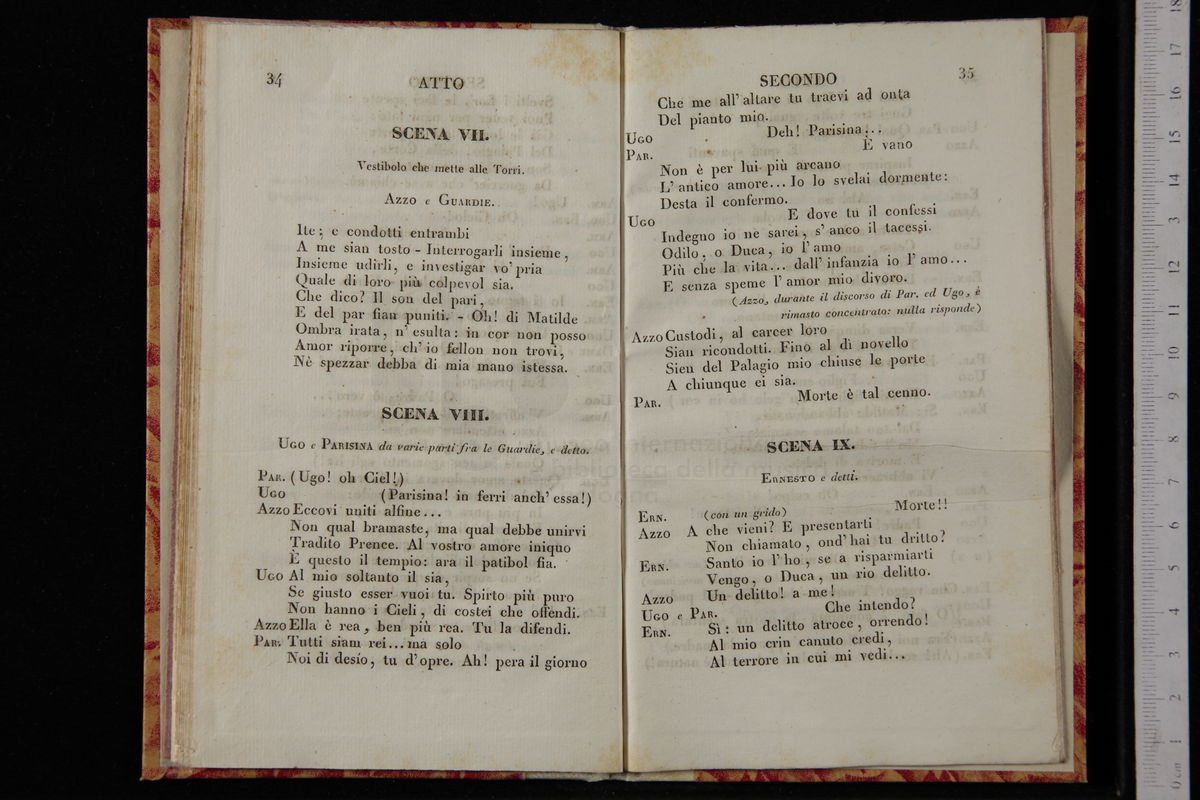 34
ATTO
SCENA VII.
Vestibolo che mette alle Torri.
AZZO e GUARDIE.
Ite; e condotti entrambi
A me sian tosto - Interrogarli insieme,
Insieme udirli, e investigar vo' pria
Quale di loro più colpevol sia.
Che dico? Il son del pari,
E del par fian puniti. - Oh! di Matilde
Ombra irata, n' esulta: in cor non posso
Amor riporre, ch' io fellon non trovi,
Nè spezzar debba di mia mano istessa.
SCENA VIII.
UGO e PARISINA da varie parti fra le Guardie, e detto.
PAR. (Ugo! oh Ciel!)
UGO (Parisina! in ferri anch' essa!)
AZZO Eccovi uniti alfine...
Non qual bramaste, ma qual debbe unirvi
Tradito Prence. Al vostro amore iniquo
È questo il tempio: ara il patibol fia.
UGO Al mio soltanto il sia,
Se giusto esser vuoi tu. Spirto più puro
Non hanno i Cieli, di costei che offendi.
AZZO Ella è rea, ben più rea. Tu la difendi.
PAR. Tutti siam rei... ma solo
Noi di desio, tu d'opre. Ah! pera il giorno
SECONDO
35
Che me all' altare tu traevi ad onta
Del pianto mio.
UGO Deh! Parisina...
PAR. È vano
Non è per lui più arcano
L' antico amore... Io lo svelai dormente:
Desta il confermo.
UGO E dove tu il confessi
Indegno io ne sarei, s' anco il tacessi.
Odilo, o Duca, io l' amo
Più che la vita... dall' infanzia io l' amo...
E senza speme l' amor mio divoro.
(Azzo, durante il discorso di Par. ed Ugo, è
rimasto concentrato: nulla risponde)
AZZO Custodi, al carcer loro
Sian ricondotti. Fino al dì novello
Sien del Palagio mio chiuse le porte
A chiunque ei sia.
PAR. Morte è tal cenno.
SCENA IX.
ERNESTO e detti.
ERN. (con un grido) Morte!!
AZZO A che vieni? E presentarti
Non chiamato, ond' hai tu dritto?
ERN. Santo io l' ho, se a risparmiarti
Vengo, o Duca, un rio delitto.
AZZO Un delitto! a me!
UGO e PAR. Che intendo?
ERN. Sì: un delitto atroce, orrendo!
Al mio crin canuto credi,
Al terrore in cui mi vedi...